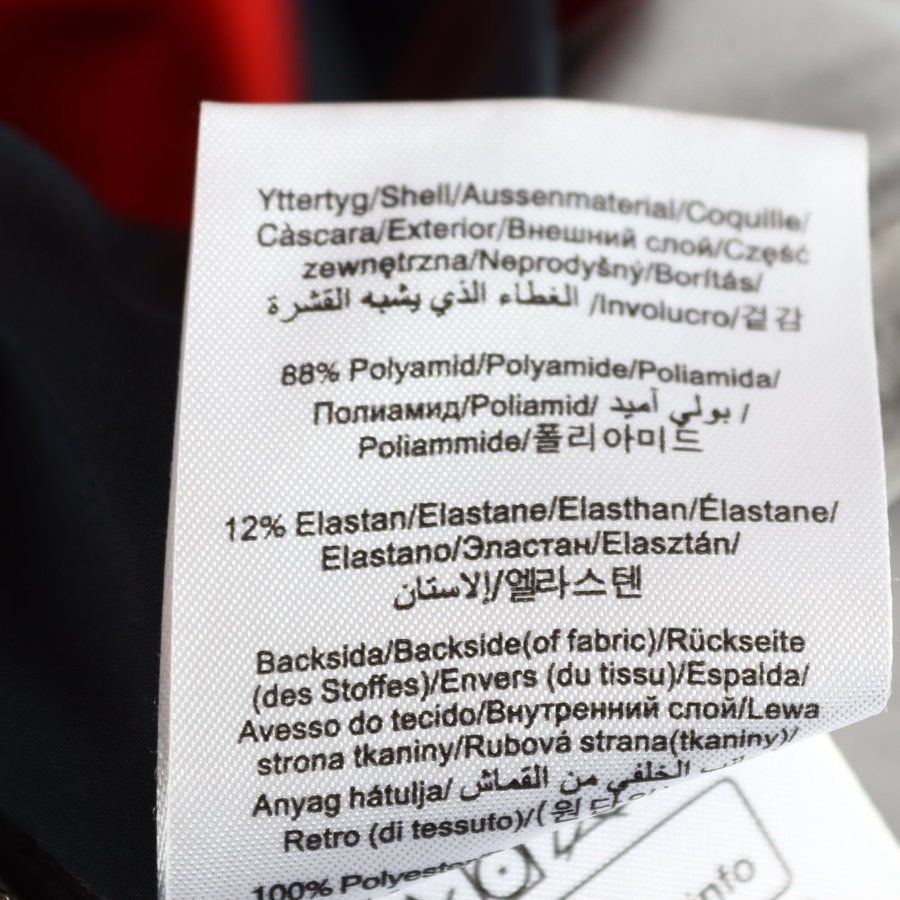 Yttertyg/Shell/Aussenmaterial/Coquille/
Càscara/Exterior/Внешний слой/Część
zewnętrzna/Neprodyšný/Borítás/
الغطاء الذي يشبه القشرة /Involucro/겉 감
88% Polyamid/Polyamide/Poliamida/
Полиамид/Poliamid/ بولي أميد /
Poliammide/폴리아미드
12% Elastan/Elastane/Elasthan/Élastane/
Elastano/Эластан/Elasztán/
إلاستان/엘라스텐
Backsida/Backside(of fabric)/Rückseite
(des Stoffes)/Envers (du tissu)/Espalda/
Avesso do tecido/Внутренний слой/Lewa
strona tkaniny/Rubová strana(tkaniny)/
Anyag hátulja/ الخلفي من القماش
Retro (di tessuto)/(원단
100% Polyester
info